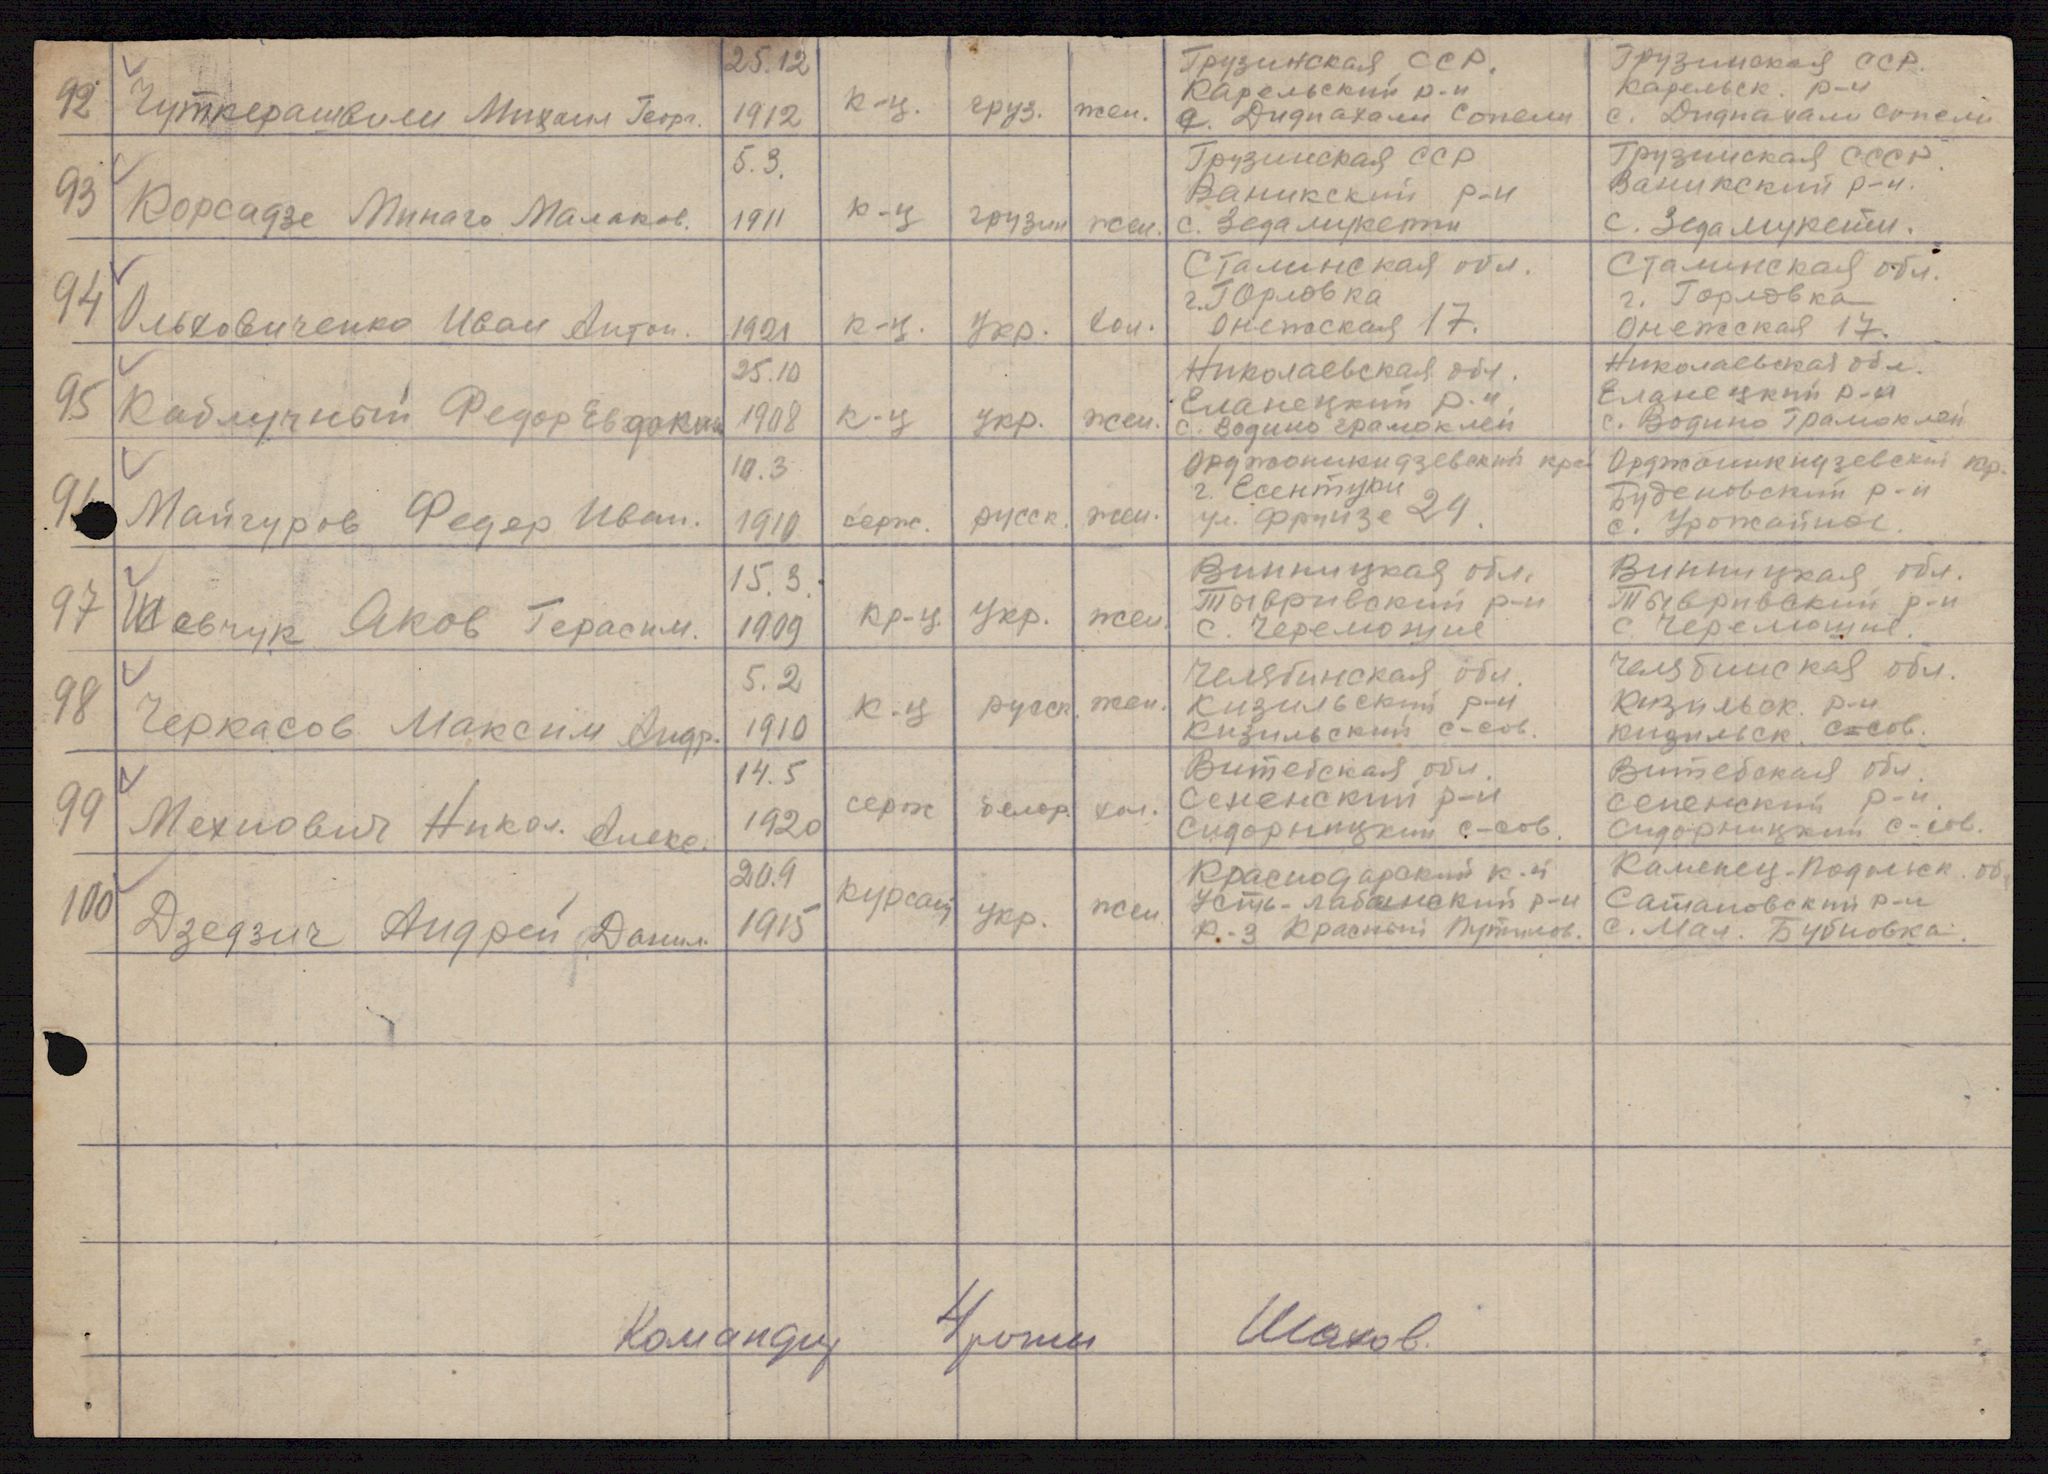 92 Чуткерашвили Михаил Георг. 25.12 1912 к-ц. груз. жен. Грузинская ССР. Грузинская ССР.
Карельский р-н Карельск. р-н
с. Дидпахали Сопели с. Дидпахали сопели
93 Корсадзе Минаго Малаков. 5.3. 1911 к-ц грузин жен. Грузинская ССР Грузинская СССР.
Ваникский р-н Ваникский р-н.
с. Зедамукети с. Зедамукети.
94 Ольховиченко Иван Антон. 1921 к-ц. укр. хол. Сталинская обл. Сталинская обл.
г. Горловка г. Горловка
Онежская 17. Онежская 17.
95 Каблучный Федор Евдоким 25.10 1908 к-ц укр. жен. Николаевская обл. Николаевская обл.
Еланецкий р-н Еланецкий р-н
с. Водино Грамоклей с. Водино Грамоклей
96 Майгуров Федер Иван. 10.3 1910 серж. русск. жен. Орджоникидзевский край Орджоникидзевский кр.
г. Есентуки Буденовский р-н
ул. Фрунзе 29. с. Урожайное.
97 Шевчук Яков Герасим. 15.3. 1909 кр-ц укр. жен. Винницкая обл. Винницкая обл.
Тывривский р-н Тывривский р-н
с. Черемошие с. Черемошие.
98 Черкасов Максим Андр. 5.2 1910 к-ц русск. жен. Челябинская обл. Челябинская обл.
Кизильский р-н Кизильск. р-н
Кизильский с-сов. Кизильск. с-сов.
99 Мехнович Никол. Алекс. 14.5 1920 серж белор. хол. Витебская обл. Витебская обл.
Сененский р-н Сененский р-н.
Сидорницкий с-сов. Сидорницкий с-сов.
100 Дзедзич Андрей Данил. 20.9 1915 курсант укр. жен Краснодарский к-й Каменец-Подольск. об.
Усть-Лабинский р-н Сатановский р-н
к-з Красный Путилов. с. Мал. Бубновка.
Командир 4 роты Шахов.